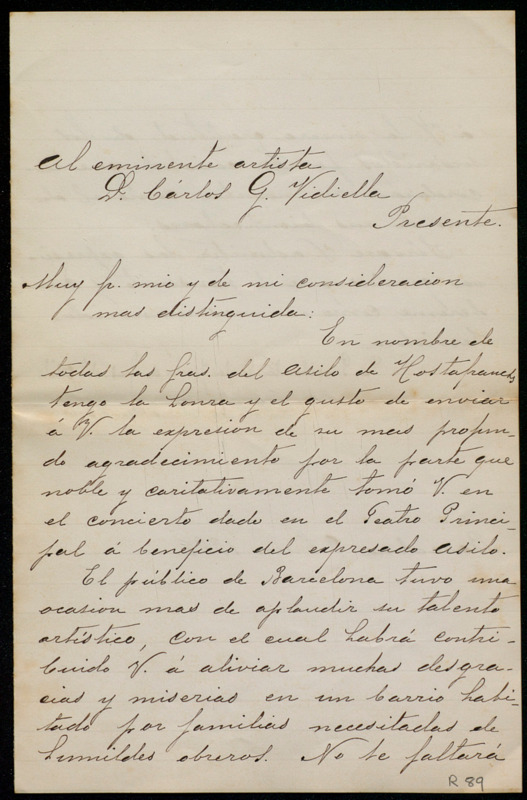 Al eminente artista
D. Cárlos G. Vidiella
Presente.
Muy Sr. mio y de mi consideracion
mas distinguida:
En nombre de
todas las Sras. del Asilo de Hostafranchs
tengo la honra y el gusto de enviar
á V. la expresion de su mas profun-
do agradecimiento por la parte que
noble y caritativamente tomó V. en
el concierto dado en el Teatro Princi-
pal á beneficio del expresado Asilo.
El público de Barcelona tuvo una
ocasion mas de aplaudir su talento
artístico, con el cual habrá contri-
buido V. á aliviar muchas desgra-
cias y miserias en un barrio habi-
tado por familias necesitadas de
humildes obreros. No le faltará
R 89